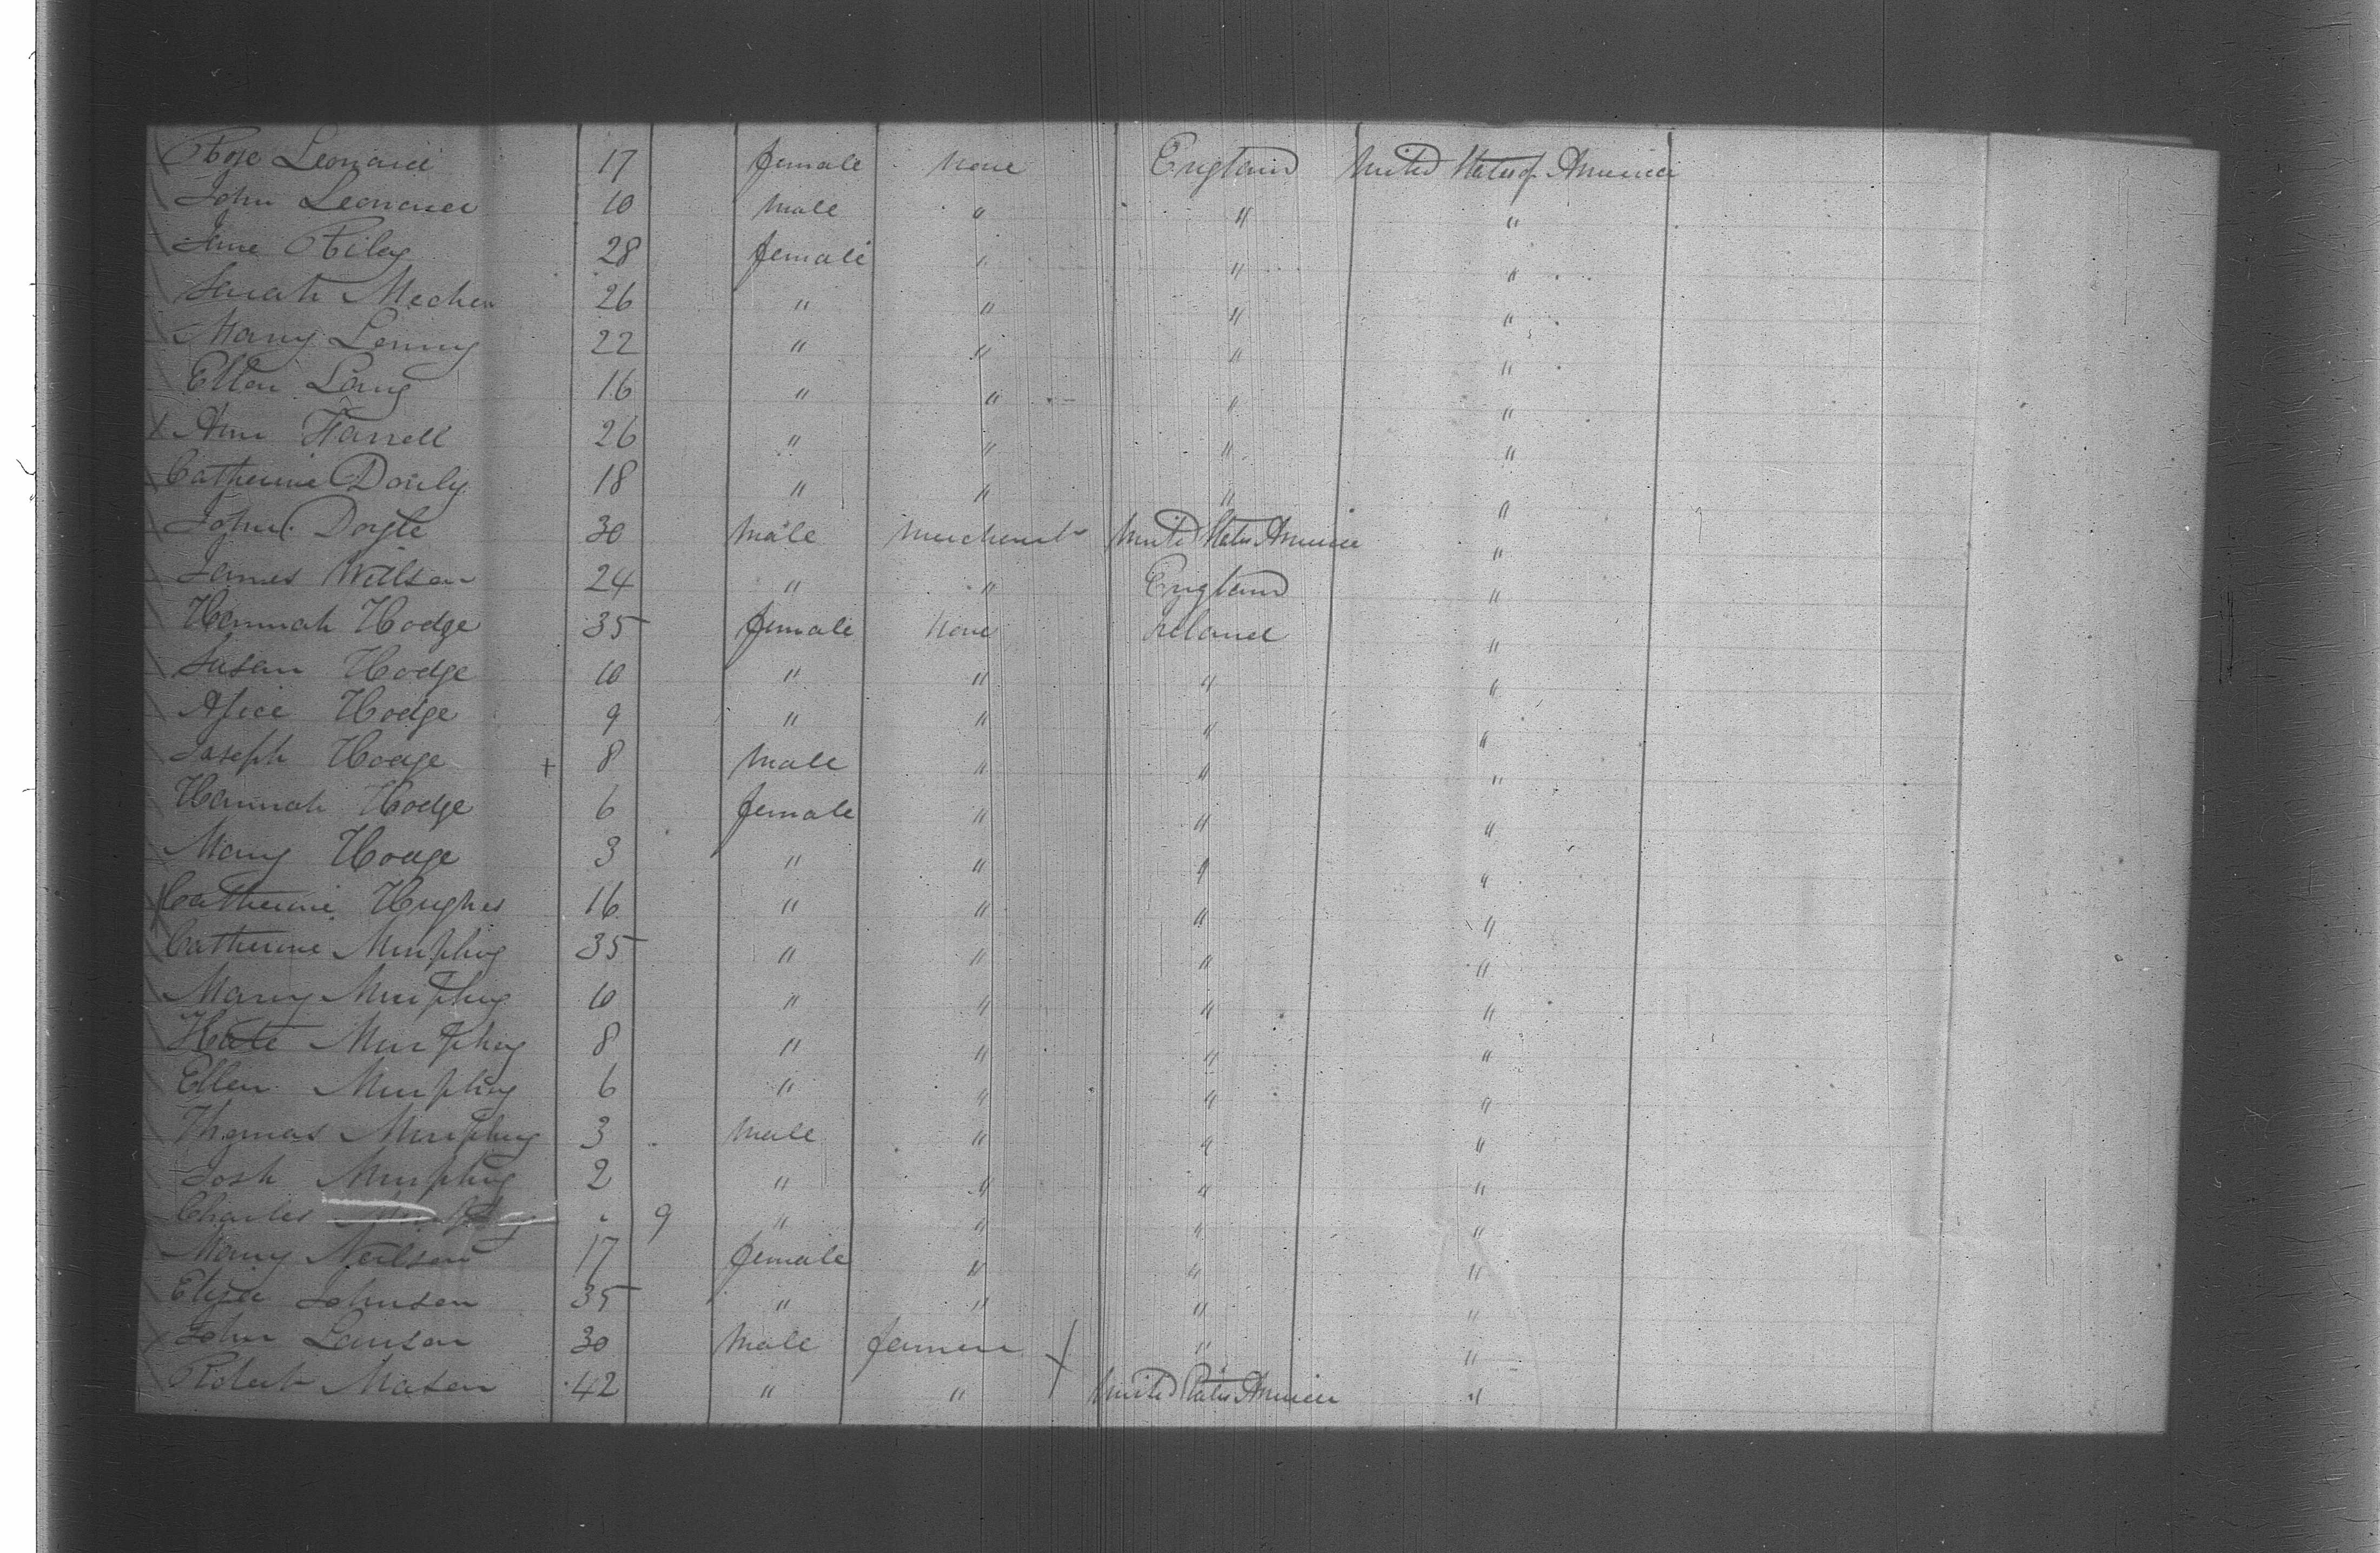 Rose Leonard 17 female None England United States of America
John Leonard 10 Male " " "
Jane Riley 28 female " " "
Sarah Mechen 26 " " " "
Mary Lenny 22 " " " "
Ellen Lang 16 " " " "
Ann Farrell 26 " " " "
Catherine Douly 18 " " " "
John Doyle 30 Male Merchant United States America "
James Willson 24 " " England "
Hannah Hodge 35 female None Ireland "
Susan Hodge 10 " " " "
Alice Hodge 9 " " " "
Joseph Hodge + 8 Male " " "
Hannah Hodge 6 female " " "
Mary Hodge 3 " " " "
Catherine Hughes 16 " " " "
Catherine Murphy 35 " " " "
Mary Murphy 10 " " " "
Kate Murphy 8 " " " "
Ellen Murphy 6 " " " "
Thomas Murphy 3 Male " " "
Josh Murphy 2 " " " "
Charles Murphy 9 " " " "
Mary Neilson 17 female " " "
Eliza Johnson 35 " " " "
John Lawson 30 Male farmer " "
Robert Mason 42 " " United States America "